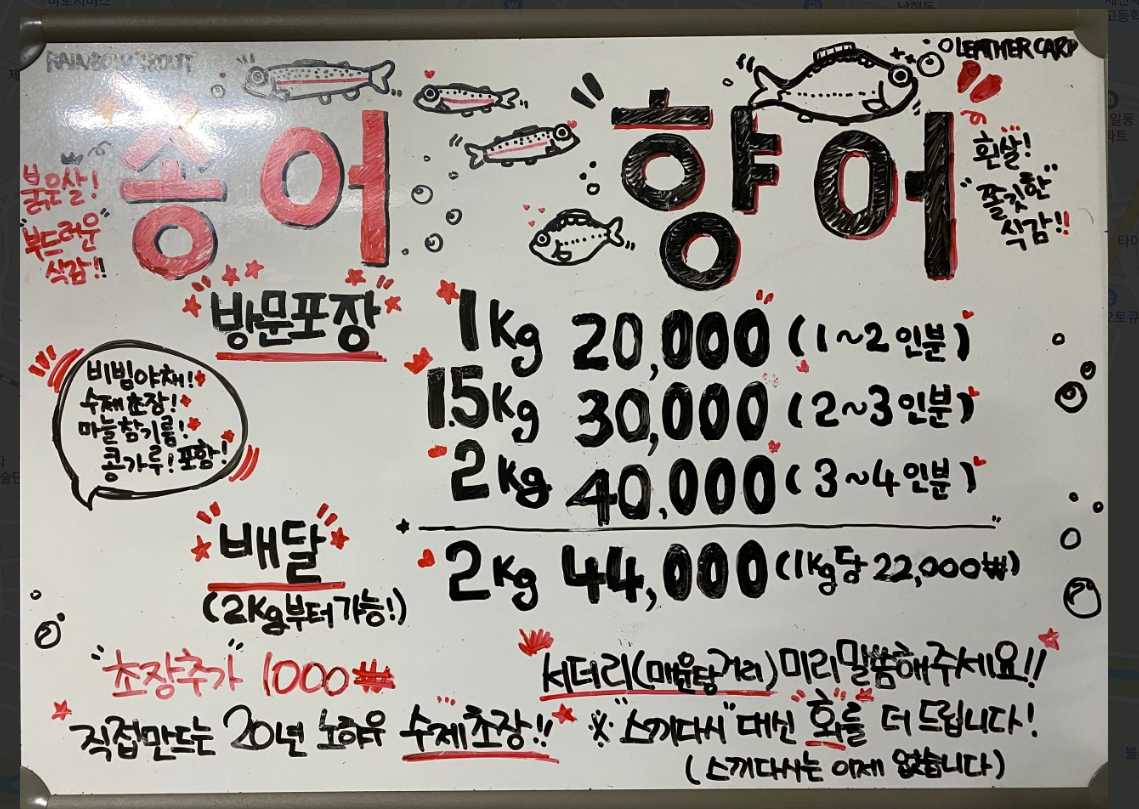 RAINBOW TROUT
LEATHER CARP
송어
향어
붉은살!
"부드러운"
식감!!
흰살!
"쫄깃한"
식감!!
"방문포장"
1Kg 20,000 (1~2인분)
1.5Kg 30,000 (2~3인분)
2Kg 40,000 (3~4인분)
비빔야채!
수제초장!
마늘참기름!
콩가루!포함!
배달
(2Kg부터가능!)
2Kg 44,000 (1Kg당 22,000₩)
"초장추가" 1000₩
직접만드는 20년 노하우 수제초장!!
서더리(매운탕거리)미리말씀해주세요!!
※"스끼다시"대신 회를 더 드립니다!
(스끼다시는 이제 없습니다)